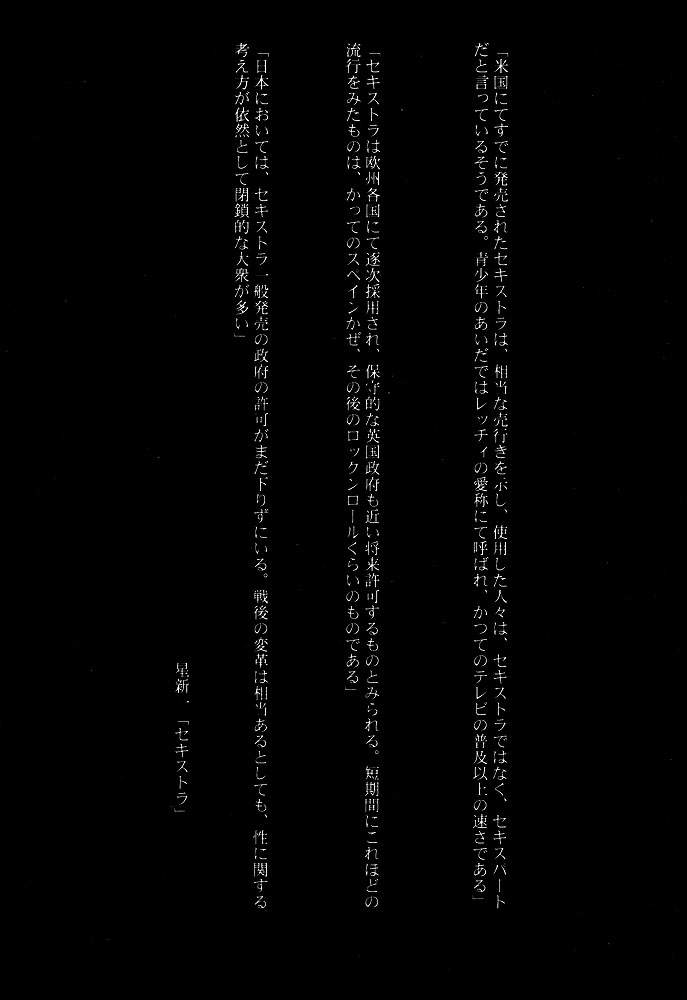 「米国にてすでに発売されたセキストラは、相当な売行きを示し、使用した人々は、セキストラではなく、セキスパート
だと言っているそうである。青少年のあいだではレッチィの愛称にて呼ばれ、かつてのテレビの普及以上の速さである」
「セキストラは欧州各国にて逐次採用され、保守的な英国政府も近い将来許可するものとみられる。短期間にこれほどの
流行をみたものは、かってのスペインかぜ、その後のロックンロールくらいのものである」
「日本においては、セキストラ一般発売の政府の許可がまだ下りずにいる。戦後の変革は相当あるとしても、性に関する
考え方が依然として閉鎖的な大衆が多い」
星新一「セキストラ」